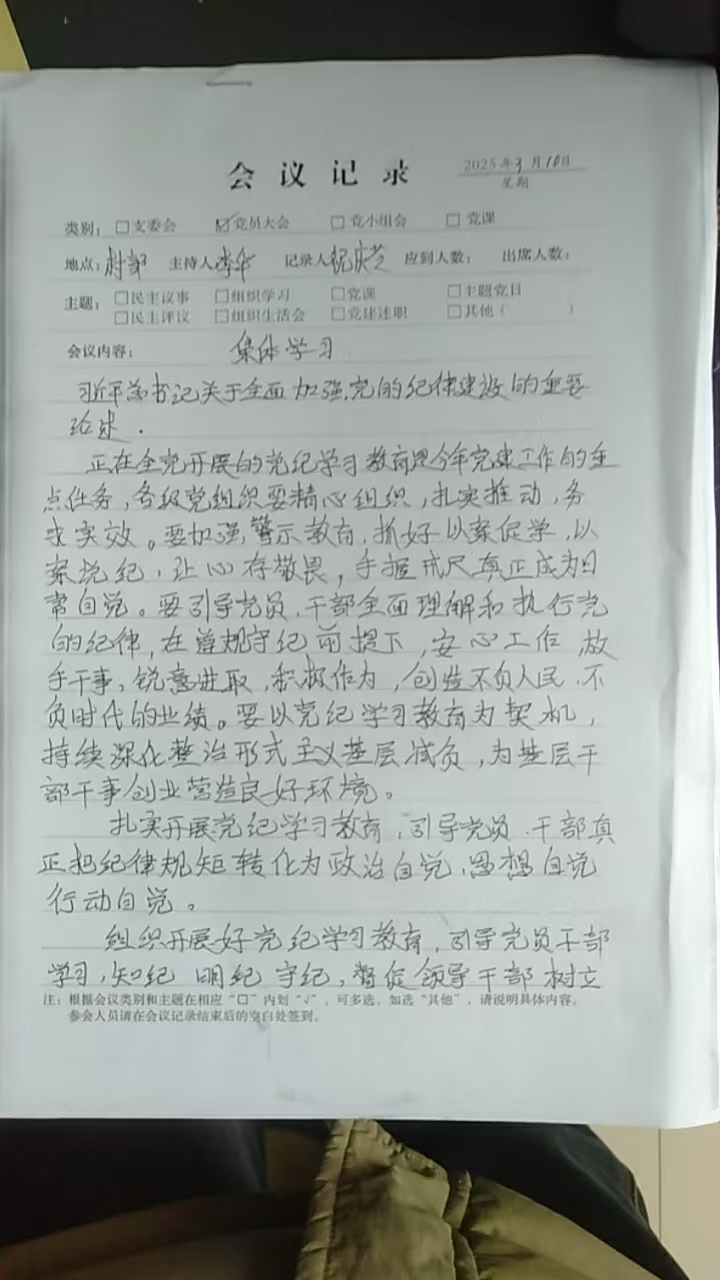 会议记录
2025年3月10日
星期
类别：□支委会 ☑党员大会 □党小组会 □党课
地点：村部 主持人：李华 记录人：倪庆芝 应到人数： 出席人数：
主题：□民主议事 □组织学习 □党课 □主题党日
□民主评议 □组织生活会 □党建述职 □其他（ ）
会议内容： 集体学习
习近平总书记关于全面加强党的纪律建设的重要
论述.
正在全党开展的党纪学习教育是今年党建工作的重
点任务，各级党组织要精心组织，扎实推动，务
求实效。要加强警示教育，抓好以案促学，以
案说纪，让心存敬畏，手握戒尺真正成为日
常自觉。要引导党员，干部全面理解和执行党
的纪律，在遵规守纪前提下，安心工作 放
手干事，锐意进取，积极作为，创造不负人民，不
负时代的业绩。要以党纪学习教育为契机，
持续深化整治形式主义基层减负，为基层干
部干事创业营造良好环境。
扎实开展党纪学习教育，引导党员，干部真
正把纪律规矩转化为政治自觉，思想自觉
行动自觉。
组织开展好党纪学习教育，引导党员干部
学习，知纪 明纪 守纪，督促领导干部树立
注：根据会议类别和主题在相应“□”内划“√”，可多选。如选“其他”，请说明具体内容。
参会人员请在会议记录结束后的空白处签到。